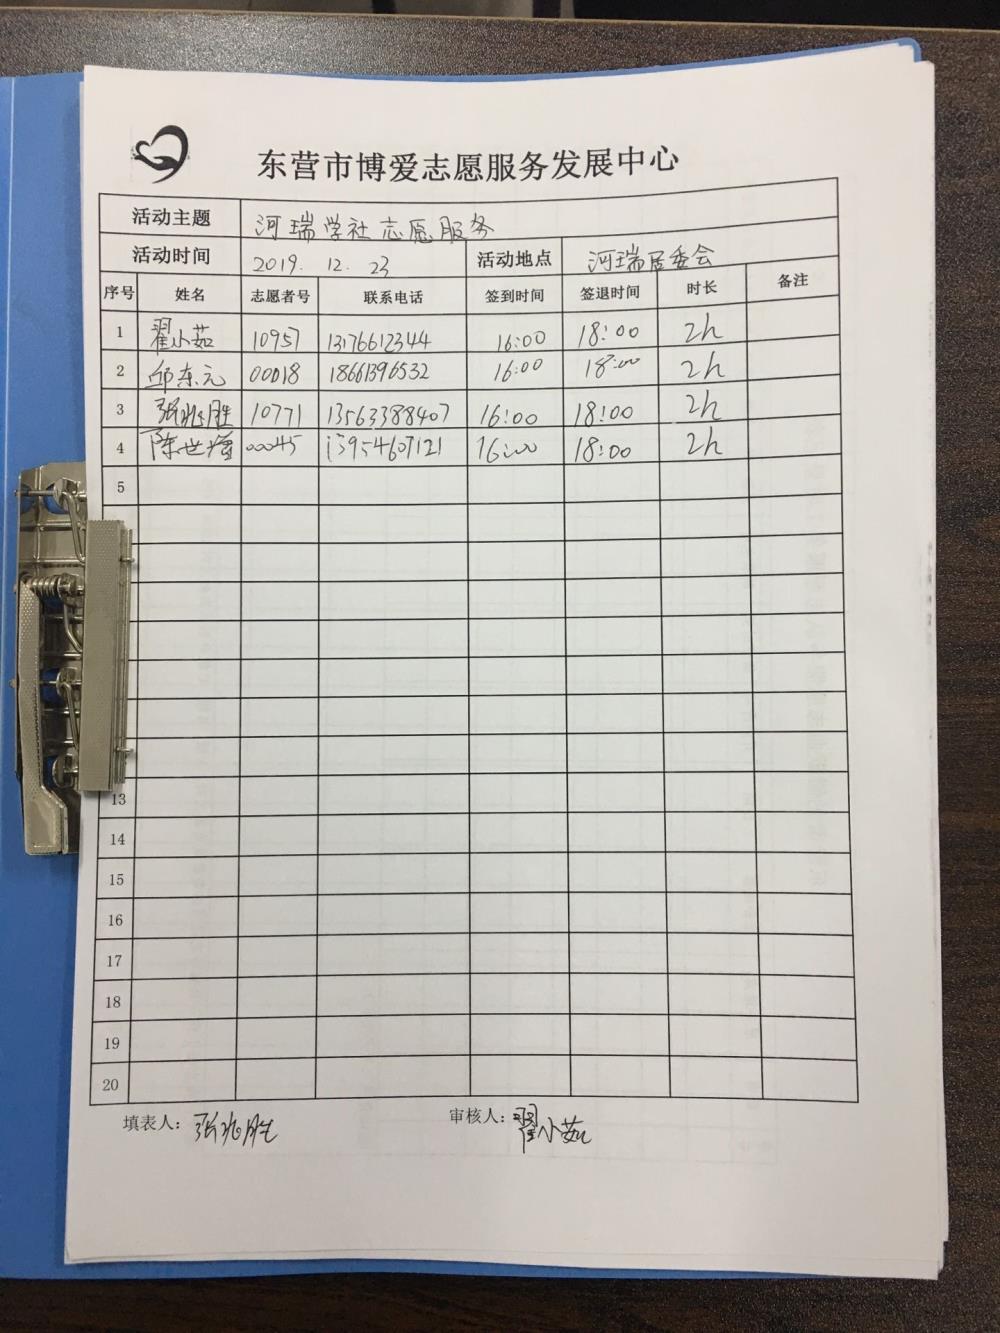 东营市博爱志愿服务发展中心
活动主题 河瑞学社志愿服务
活动时间 2019. 12. 23 活动地点 河瑞居委会
序号 姓名 志愿者号 联系电话 签到时间 签退时间 时长 备注
1 翟小茹 10957 13176612344 16:00 18:00 2h
2 邱东元 00018 18661396532 16:00 18:00 2h
3 张兆胜 10771 13563388407 16:00 18:00 2h
4 陈世 00045 13954607121 16:00 18:00 2h
5
13
14
15
16
17
18
19
20
填表人: 张兆胜 审核人: 翟小茹